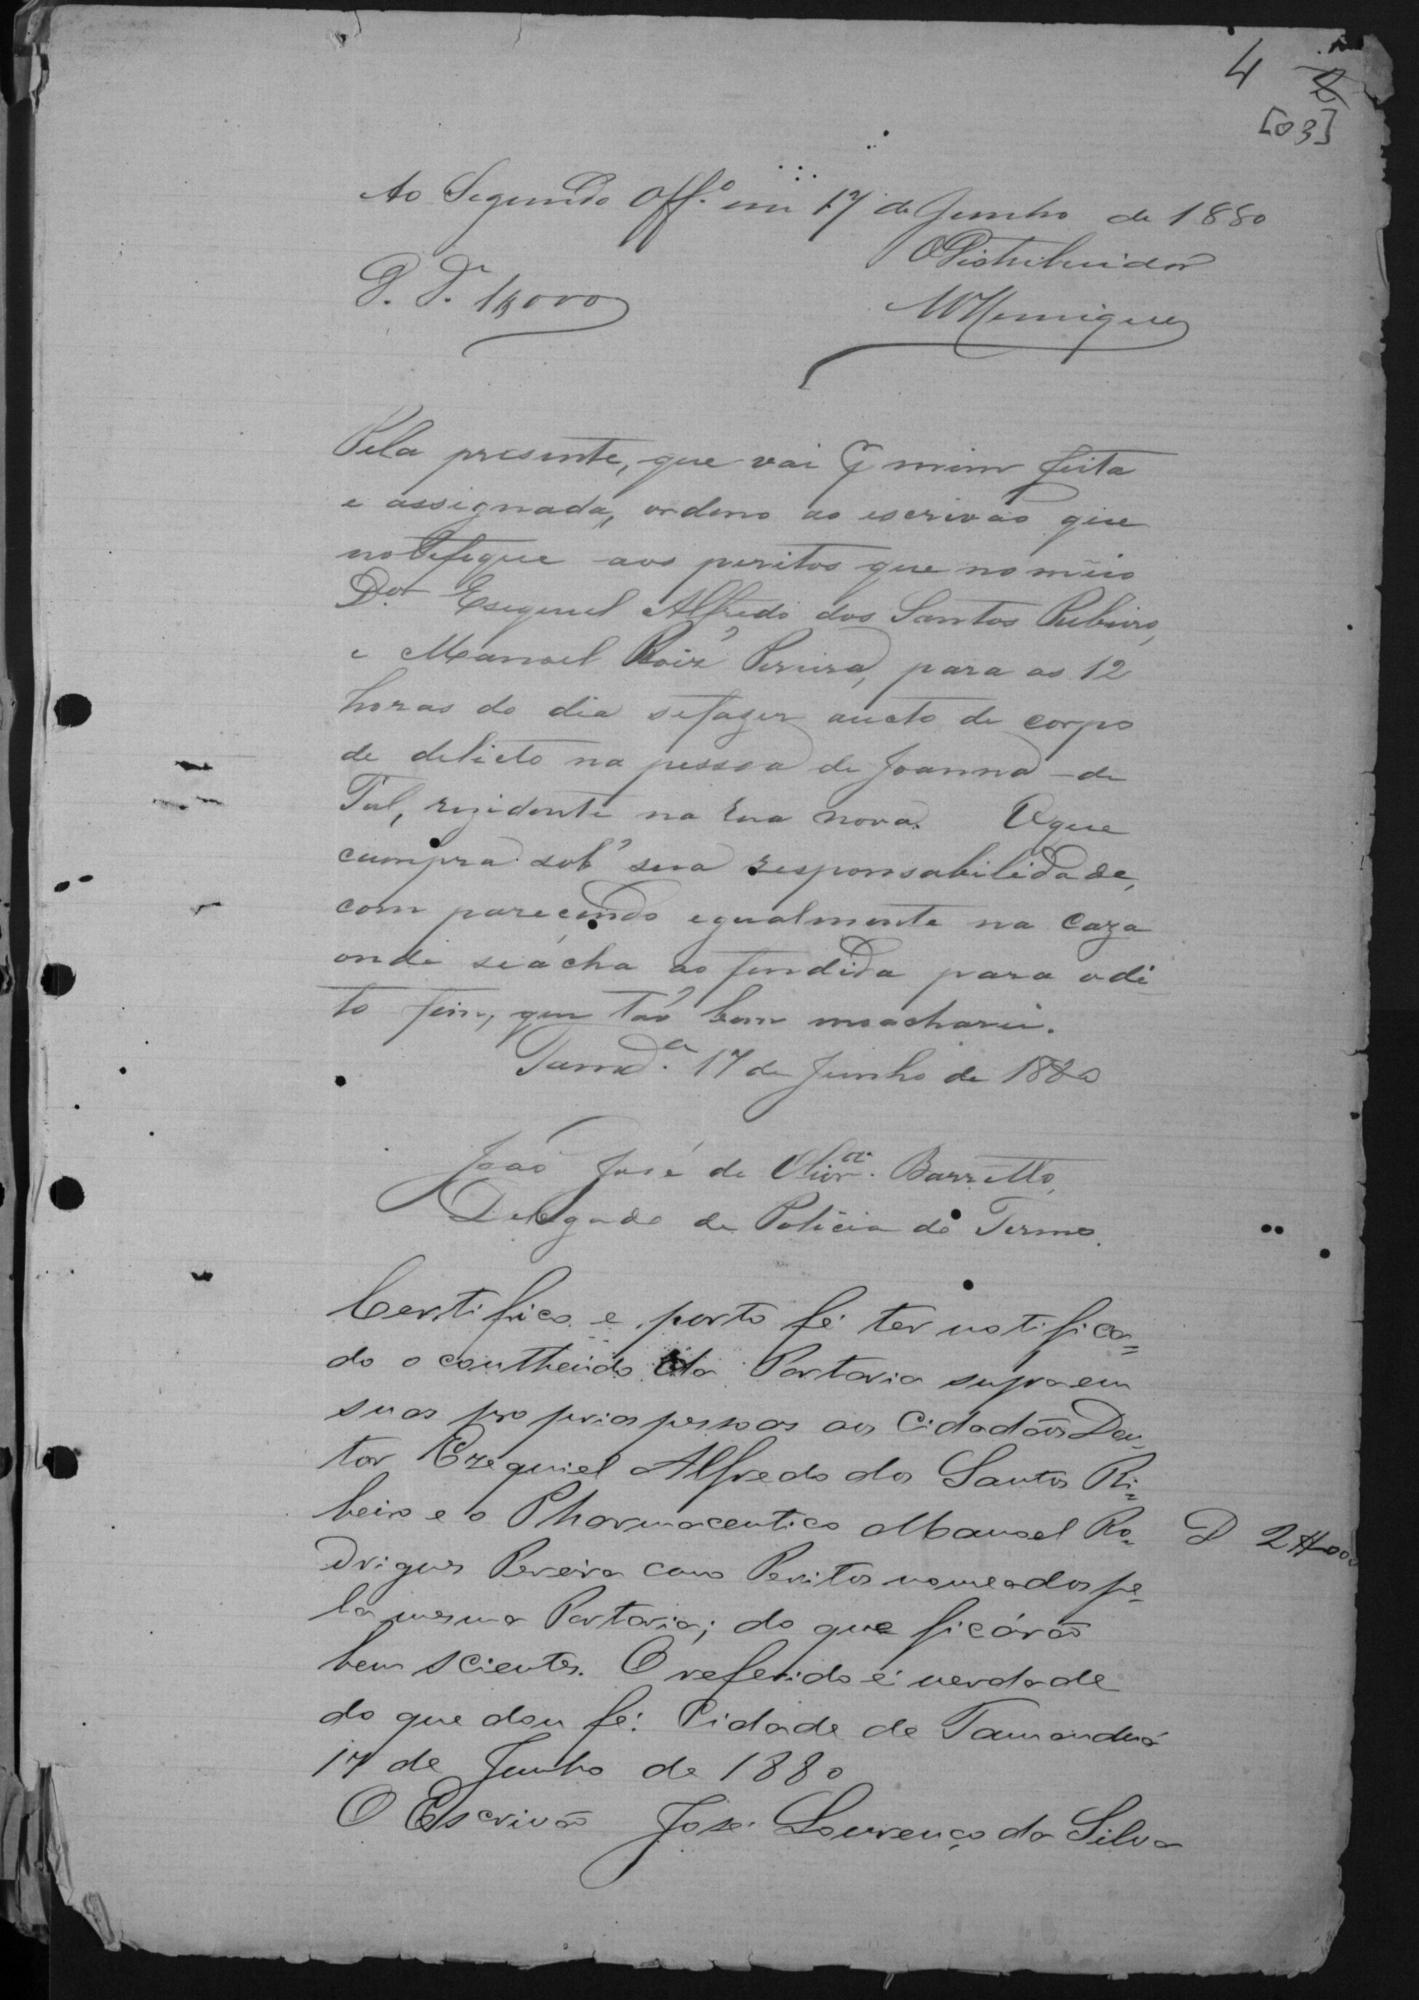 4 2
[03]
Ao Segundo Off.º em 17 de Junho de 1880
O Distribuidor
D. D.ª 1$000
MHenriques
Pela presente, que vai p mim feita
e assignada, ordeno ao escrivão que
notefique aos peritos que nomeio
D.or Esequiel Alfredo dos Santos Rebeiro,
e Manoel Roiz' Pereira, para as 12
horas do dia sefazer aucto de corpo
de delicto na pessoa de Joanna de
Tal, rezidente na rua nova. O que
cumpra sob' sua responsabilidade,
com parecendo egualmente na caza
onde seácha ao fendida para o di-
to fim, que tão bem meacharei.
Tamd.ª 17 de Junho de 1880
João José de Olivr.ª Barretto,
Delegado de Policia do Termo.
Certifico e porto fé ter notifica=
do o contheúdo da Portaria supra em
suas proprias pessoas aos Cidadãos Dou-
tor Ezequiel Alfredo dos Santos Ri=
beiro e o Pharmaceutico Manoel Ro=
D 2$000
drigues Pereira como Peritos nomeados pe-
la mesma Portaria; do que ficárão
bem scientes. O referido é verdade
do que dou fé. Cidade de Tamanduá
17 de Junho de 1880
O Escrivão José Lourenço da Silva